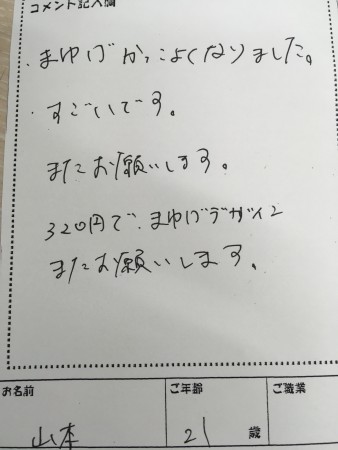 コメント記入欄
・まゆげかっこよくなりました。
・すごいいです。
またお願いします。
320円で、まゆげデザイン
またお願いします。
お名前 ご年齢 ご職業
山本 21 歳